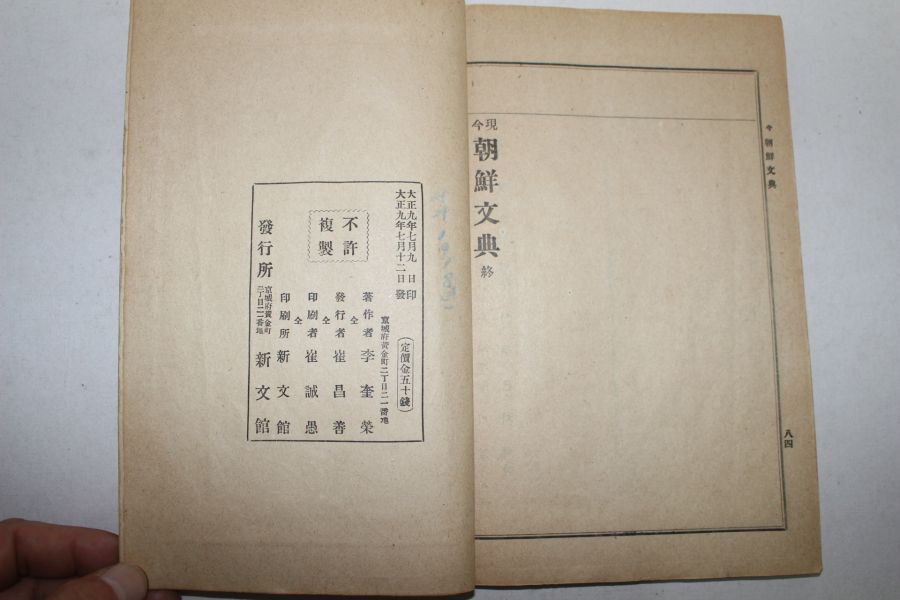 今 朝鮮文典
八四
現今 朝鮮文典 終
大正九年七月九日印
大正九年七月十二日發
(定價金五十錢)
不許複製
京城府黃金町二丁目二一番地
著作者 李奎榮
仝
發行者 崔昌善
仝
印刷者 崔誠愚
印刷所 新文館
發行所 京城府黃金町二丁目二一番地 新文館